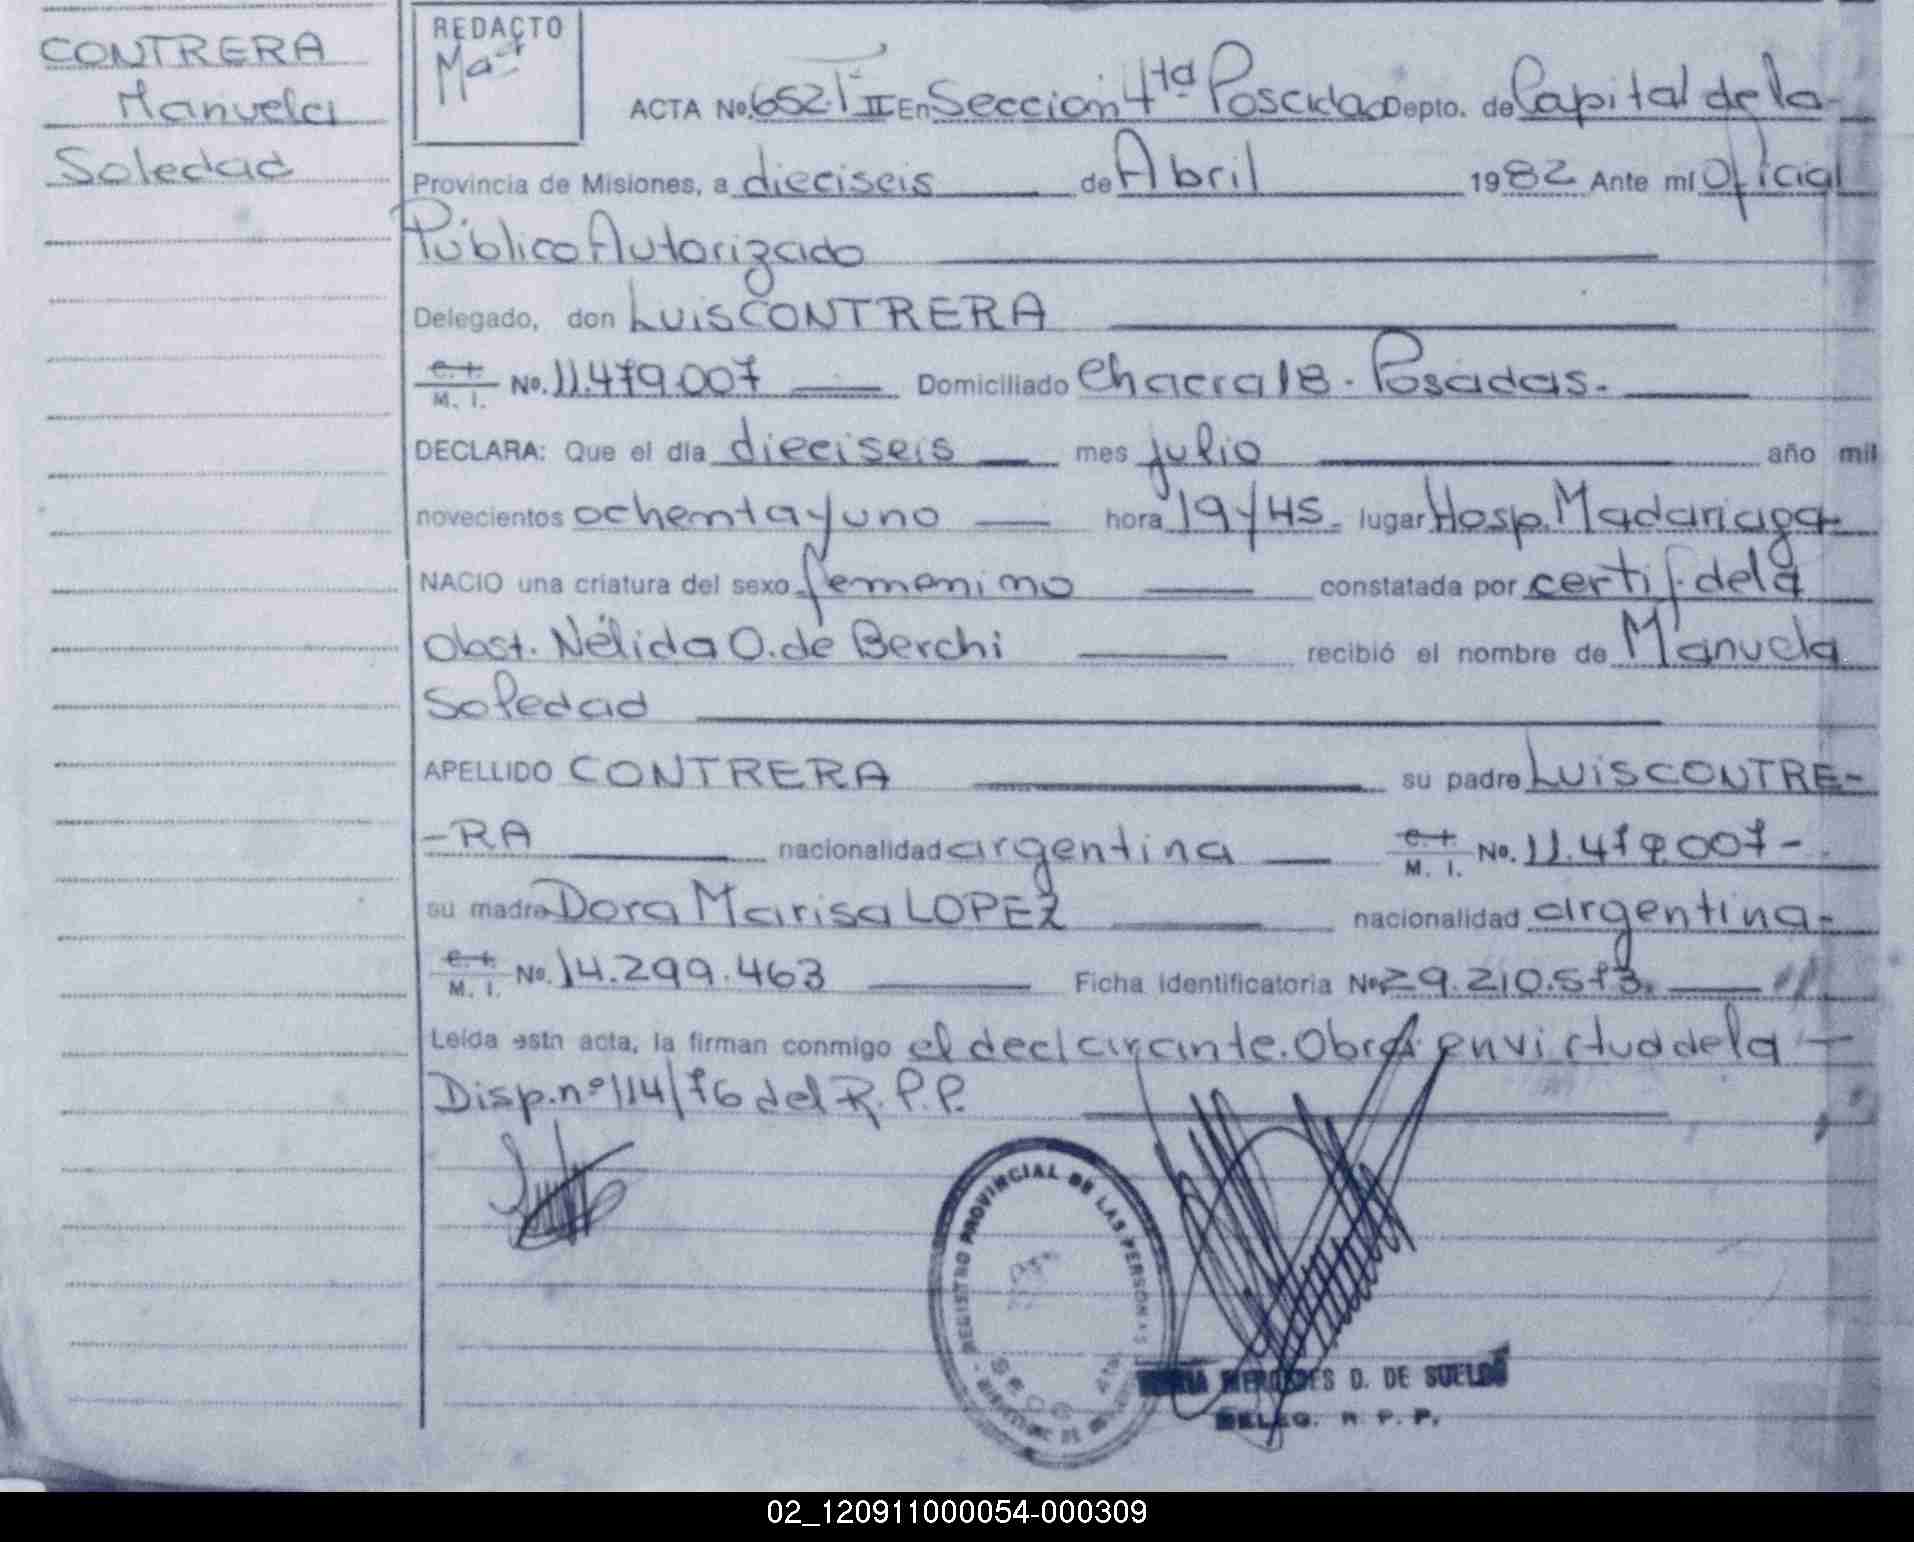 CONTRERA
Manuela
Soledad
REDACTO
ACTA No. 652 T II En Seccion 4ta Posadas Depto. de Capital de la-
Provincia de Misiones, a dieciseis de Abril 1982 Ante mí Oficial
Público Autorizado
Delegado, don Luis CONTRERA
C.I. M. I. No. 11.479.007 Domiciliado Chacra 18 - Posadas.
DECLARA: Que el día dieciseis mes julio año mil
novecientos ochenta y uno hora 19 y 45 lugar Hosp. Madariaga-
NACIO una criatura del sexo femenino constatada por certif. de la
Obst. Nélida O. de Berchi recibió el nombre de Manuela
Soledad
APELLIDO CONTRERA su padre Luis CONTRE-
-RA nacionalidad argentina C.I. M. I. No. 11.479.007-
su madre Dora Marisa LOPEZ nacionalidad argentina-
C.I. M. I. No. 14.299.463 Ficha identificatoria No 29.210.573.
Leída esta acta, la firman conmigo el declarante. Obra en virtud de la
Disp. nº 114/76 del R. P. P.
REGISTRO PROVINCIAL DE LAS PERSONAS
MERCEDES D. DE SUELDO
DELEG. R. P. P.
02_120911000054-000309